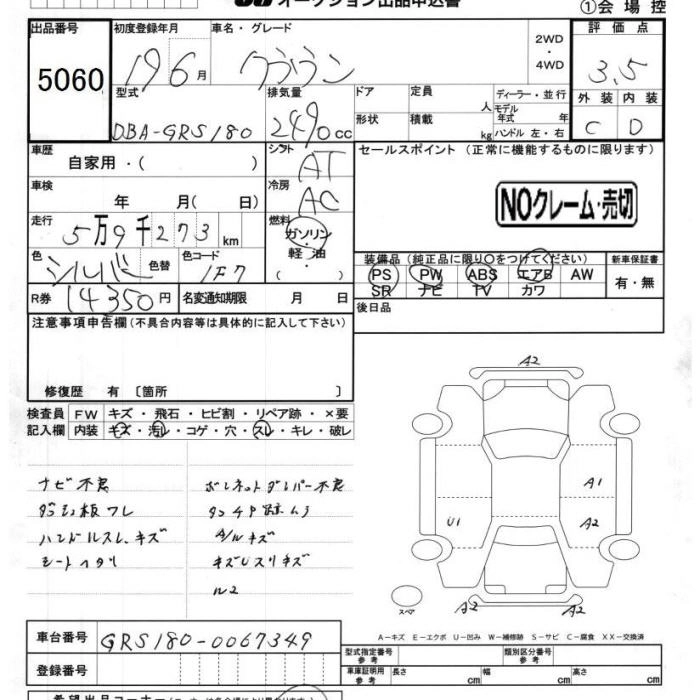 オークション出品申込書
①会場控
出品番号
5060
初度登録年月
19 6月
車名・グレード
クラウン
2WD
・
4WD
評価点
3.5
外装 内装
C D
型式
DBA-GRS180
排気量
2490cc
ドア
形状
定員 人
積載 kg
ディーラー・並行
モデル年式 年
ハンドル 左・右
車歴
自家用・( )
シフト
AT
セールスポイント (正常に機能するものに限ります)
NOクレーム・売切
車検
年 月( 日)
冷房
AC
走行
5万9千273km
燃料
ガソリン・
軽油・
( )
色
シルバー
色替
色コード
1F7
装備品(純正品に限り○をつけてください)
PS PW ABS エアB AW
SR ナビ TV カワ
新車保証書
有・無
R券 14350円
名変通知期限 月 日
後日品
注意事項申告欄(不具合内容等は具体的に記入して下さい)
修復歴 有 〔箇所 〕
検査員 FW キズ・飛石・ヒビ割・リペア跡・×要
記入欄 内装 キズ・汚レ・コゲ・穴・スレ・キレ・破レ
ナビ不良
ダッシュ板ワレ
ハンドルスレ、キズ
シートヘタリ
ボンネットダンパー不良
タッチP跡ムラ
A/Wキズ
キズUスリキズ
ル2
A2
A1
A2
U1
A2
A2
スペア
A-キズ E-エクボ U-凹み W-補修跡 S-サビ C-腐食 XX-交換済
車台番号
GRS180-0067349
登録番号
型式指定番号
参考
類別区分番号
参考
車庫証明用
参考
長さ cm
幅 cm
高さ cm